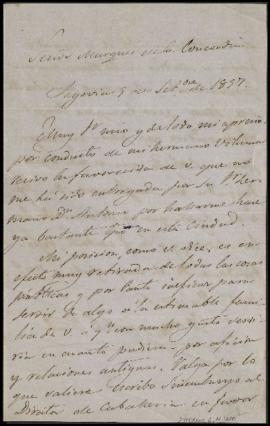 Señor Marques de la Concordia
Segovia 5 de Setbre de 1857.
Muy Sr mio y de todo mi aprecio
por conducto de mi hermano
recivo la favorecida de v. que no
me ha sido entregada por su Sr her
mano Dn Antonio por hallarme hace
ya bastante tpo en esta Ciudad.
Mi posicion, como v. dice, es en
efecto muy retirada de todas las cosas
políticas, y por tanto ineficaz para
servir de algo a la estimable fami
lia de v. á qn con mucho gusto servi
ria en cuanto pudiera por aficion
y relaciones antiguas. Valga por lo
que valiere escribo sin embargo al
Director de Caballeria en favor